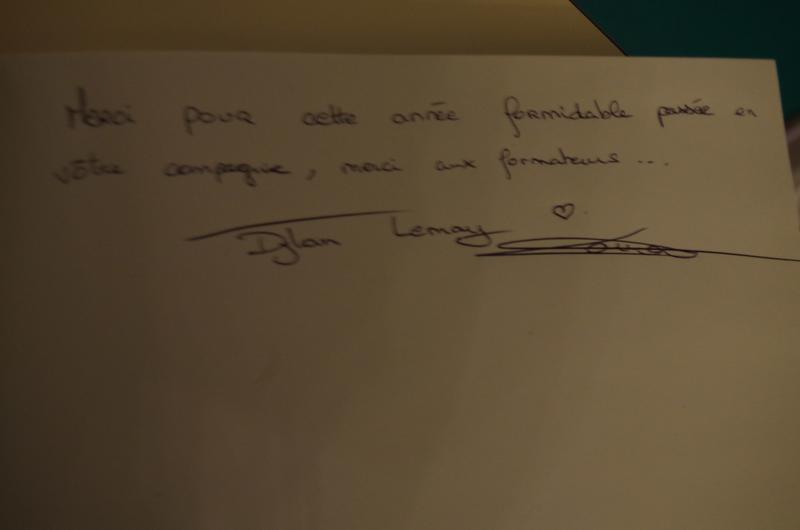 Merci pour cette année formidable passée en
vôtre compagnie, merci aux formateurs ...
Dylan Lemay